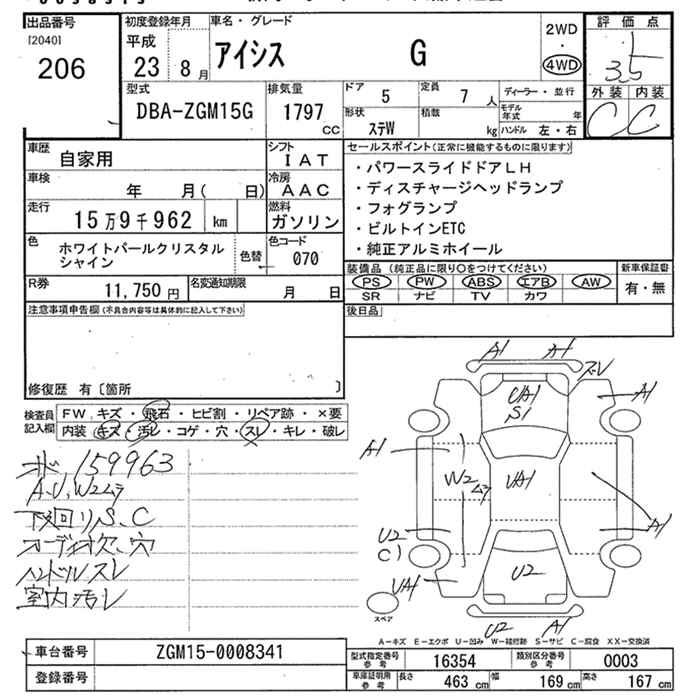 出品番号
[2040]
206
初度登録年月
平成
23 8月
車名・グレード
アイシス G
2WD
・
4WD
評価点
3.5
外装 内装
C C
型式
DBA-ZGM15G
排気量
1797
CC
ドア
5
定員
7人
ディーラー・並行
形状
ステW
積載
kg
モデル
年式 年
ハンドル 左・右
車歴
自家用
シフト
IAT
車検
年 月( 日)
冷房
AAC
走行
15万9千962 km
燃料
ガソリン
色
ホワイトパールクリスタル
シャイン
色替
色コード
070
R券
11,750円
名変通知期限
月 日
セールスポイント(正常に機能するものに限ります)
・パワースライドドアLH
・ディスチャージヘッドランプ
・フォグランプ
・ビルトインETC
・純正アルミホイール
装備品(純正品に限り○をつけてください)
PS PW ABS エアB AW
SR ナビ TV カワ
新車保証書
有・無
後日品
注意事項申告欄(不具合内容等は具体的に記入して下さい)
修復歴 有〔箇所 〕
検査員
記入欄
FW、キズ・飛石・ヒビ割・リペア跡・×要
内装、キズ・汚レ・コゲ・穴・スレ・キレ・破レ
159963
A、U、W2ムラ
下廻リS、C
オーディオ欠、穴
ハンドルスレ
室内汚レ
A1
A1
ズレ
A1
UA1
S1
A1
W2
ムラ
UA1
A1
U2
C1
UA1
U2
U2
A1
スペア
A-キズ E-エクボ U-凹み W-補修跡 S-サビ C-腐食 XX-交換済
車台番号
ZGM15-0008341
登録番号
型式指定番号
参考
16354
類別区分番号
参考
0003
車庫証明用
参考
長さ
463 cm
幅
169 cm
高さ
167 cm